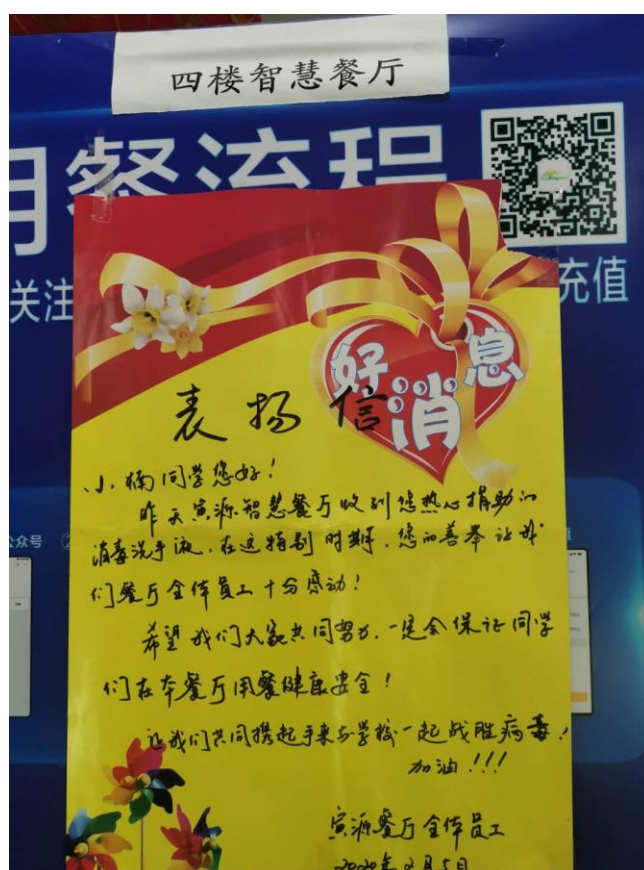 四楼智慧餐厅
用餐流程
关注
充值
好消息
表扬信
小楠同学您好！
昨天宾源智慧餐厅收到您热心捐助的
消毒洗手液，在这特别时期，您的善举让我
们餐厅全体员工十分感动！
希望我们大家共同努力，一定会保证同学
们在本餐厅用餐健康安全！
公众号
让我们共同携起手来与学校一起战胜病毒！
加油！！！
宾源餐厅全体员工
2020年2月5日